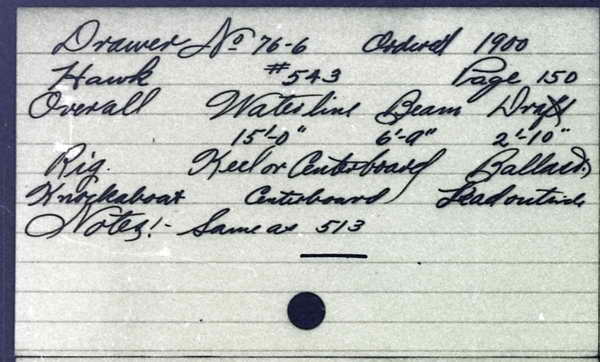 Drawer No 76-6 Ordered 1900
Hawk #543 Page 150
Overall Waterline Beam Draft
15'-0" 6'-9" 2'-10"
Rig. Keel or Centerboard Ballast.
Knockabout Centerboard Lead outside
Notes:- Same as 513